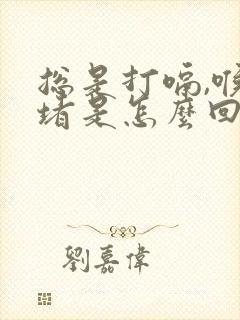 总是打嗝,喉
堵是怎麼回
劉嘉偉